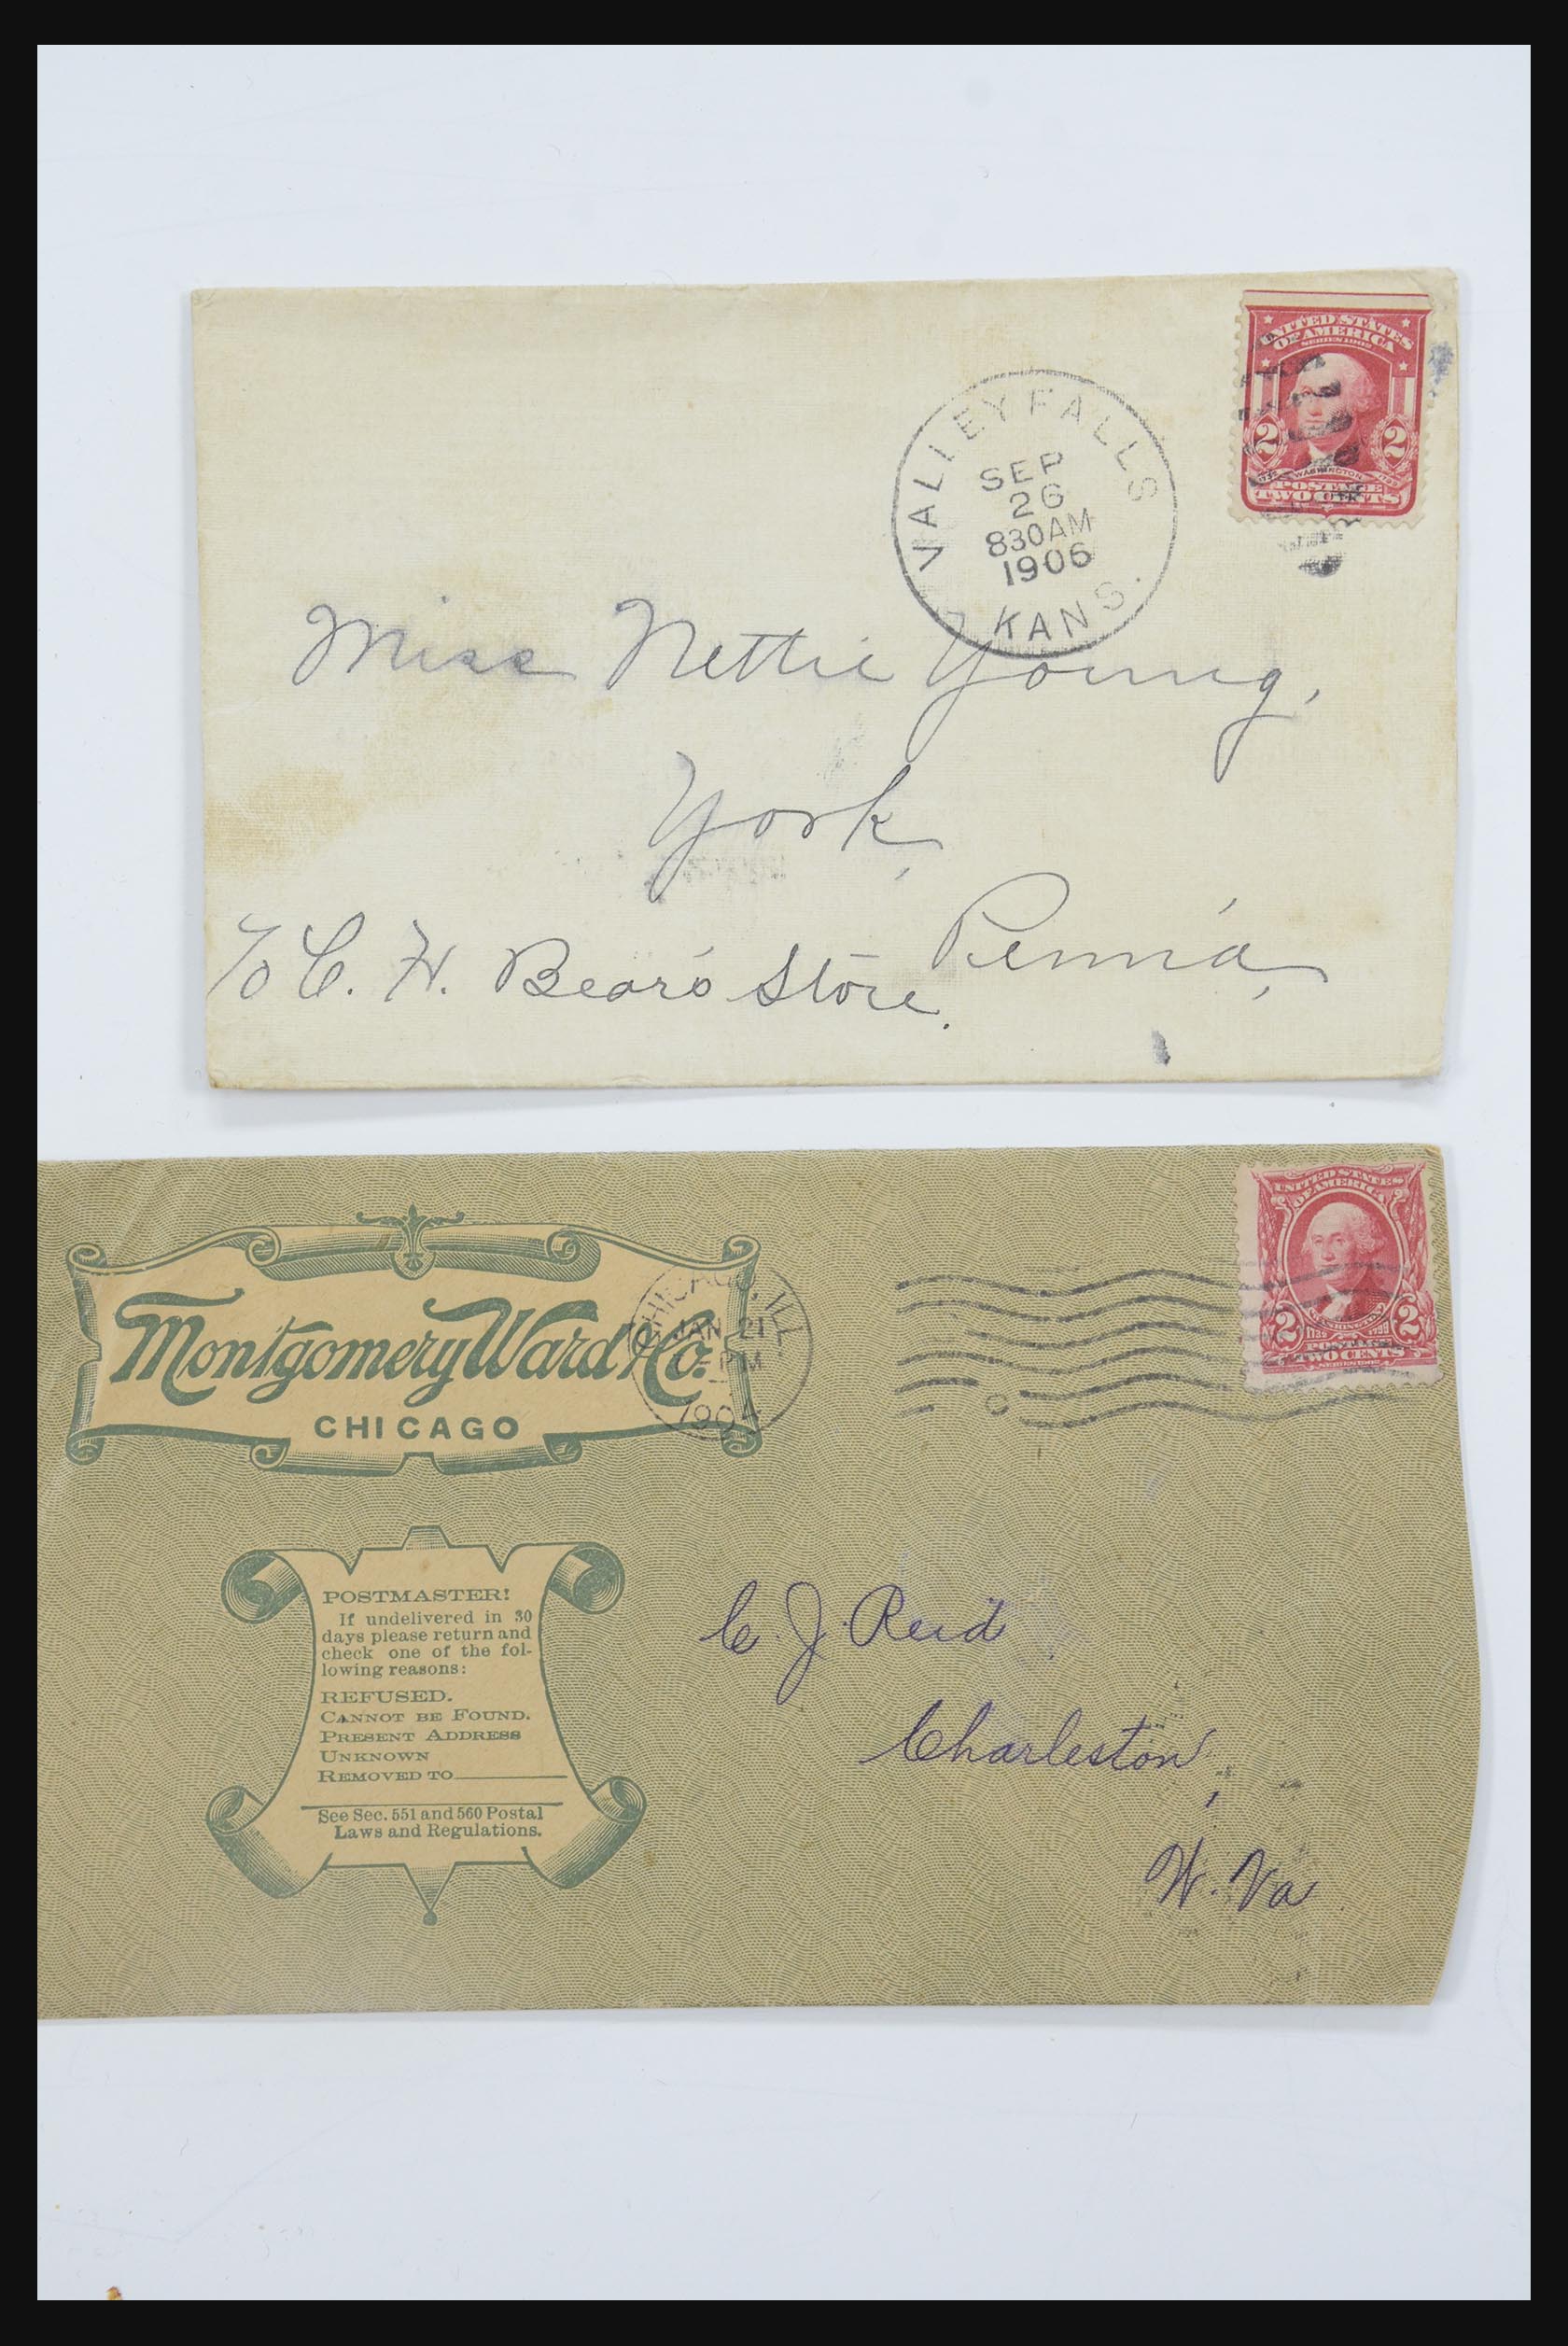 UNITED STATES
OF AMERICA
SERIES 1902
2 2
1732 WASHINGTON 1799
POSTAGE
TWO CENTS
VALLEY FALLS
SEP
26
830AM
1906
KANS.
Miss Nettie Young,
York,
Penn'a,
℅ C. H. Bear's Store.
UNITED STATES
OF AMERICA
2 2
WASHINGTON
1732 1799
POSTAGE
TWO CENTS
SERIES 1902
Montgomery Ward & Co.
CHICAGO
CHICAGO, ILL
JAN 21
PM
1904
POSTMASTER!
If undelivered in 30
days please return and
check one of the fol-
lowing reasons:
REFUSED.
CANNOT BE FOUND.
PRESENT ADDRESS
UNKNOWN
REMOVED TO
See Sec. 551 and 560 Postal
Laws and Regulations.
C. J. Reid
Charleston,
W. Va